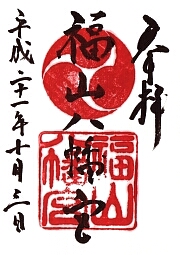 奉拝
福山八幡宮
平成二十一年十月三日
福山八幡宮